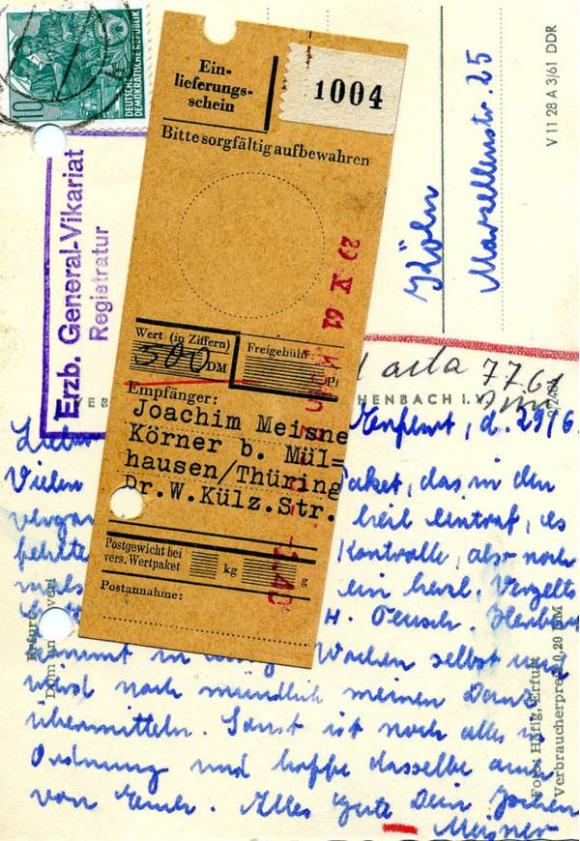 10
DEUTSCHE
DEMOKRATISCHE REPUBLIK
Erzb. General-Vikariat
Registratur
Ein-
lieferungs-
schein
1004
Bitte sorgfältig aufbewahren
Wert (in Ziffern)
500 DM
Freigebühr
Pf
Empfänger:
Joachim Meisne
Körner b. Mül=
hausen/Thüring
Dr.W.Külz.Str.
Postgewicht bei
vers. Wertpaket
kg
g
Postannahme:
Köln
Marzellenstr. 25
V 11 28 A 3/61 DDR
acta 7.7.61
HENBACH I. V.
Erfurt, d. 29/6.
Vielen Paket, das in den
heil eintraf, es
fehlte Kontrolle, also noch
ein herzl. Vergelts
H. Herbert
kommt in Wochen selbst und
wird noch mündlich meinen Dank
übermitteln. Sonst ist noch alles in
Ordnung und hoffe dasselbe auch
von Euch. Alles Gute Dein Jochen
Meisner
Erfurt
Dom
Foto: Häfig, Erfurt
Verbraucherpreis 0,20 DM